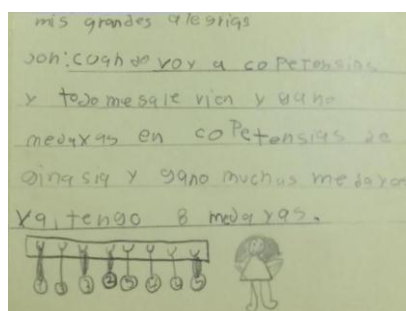 mis grandes alegrias
son: cuando voy a copetensias
y todo me sale vien y gano
medayas en copetensias de
ginasia y gano muchas medayas
ya, tengo 8 medayas.